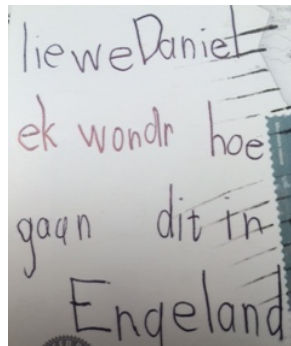 liewe Daniel
ek wondr hoe
gaan dit in
Engeland